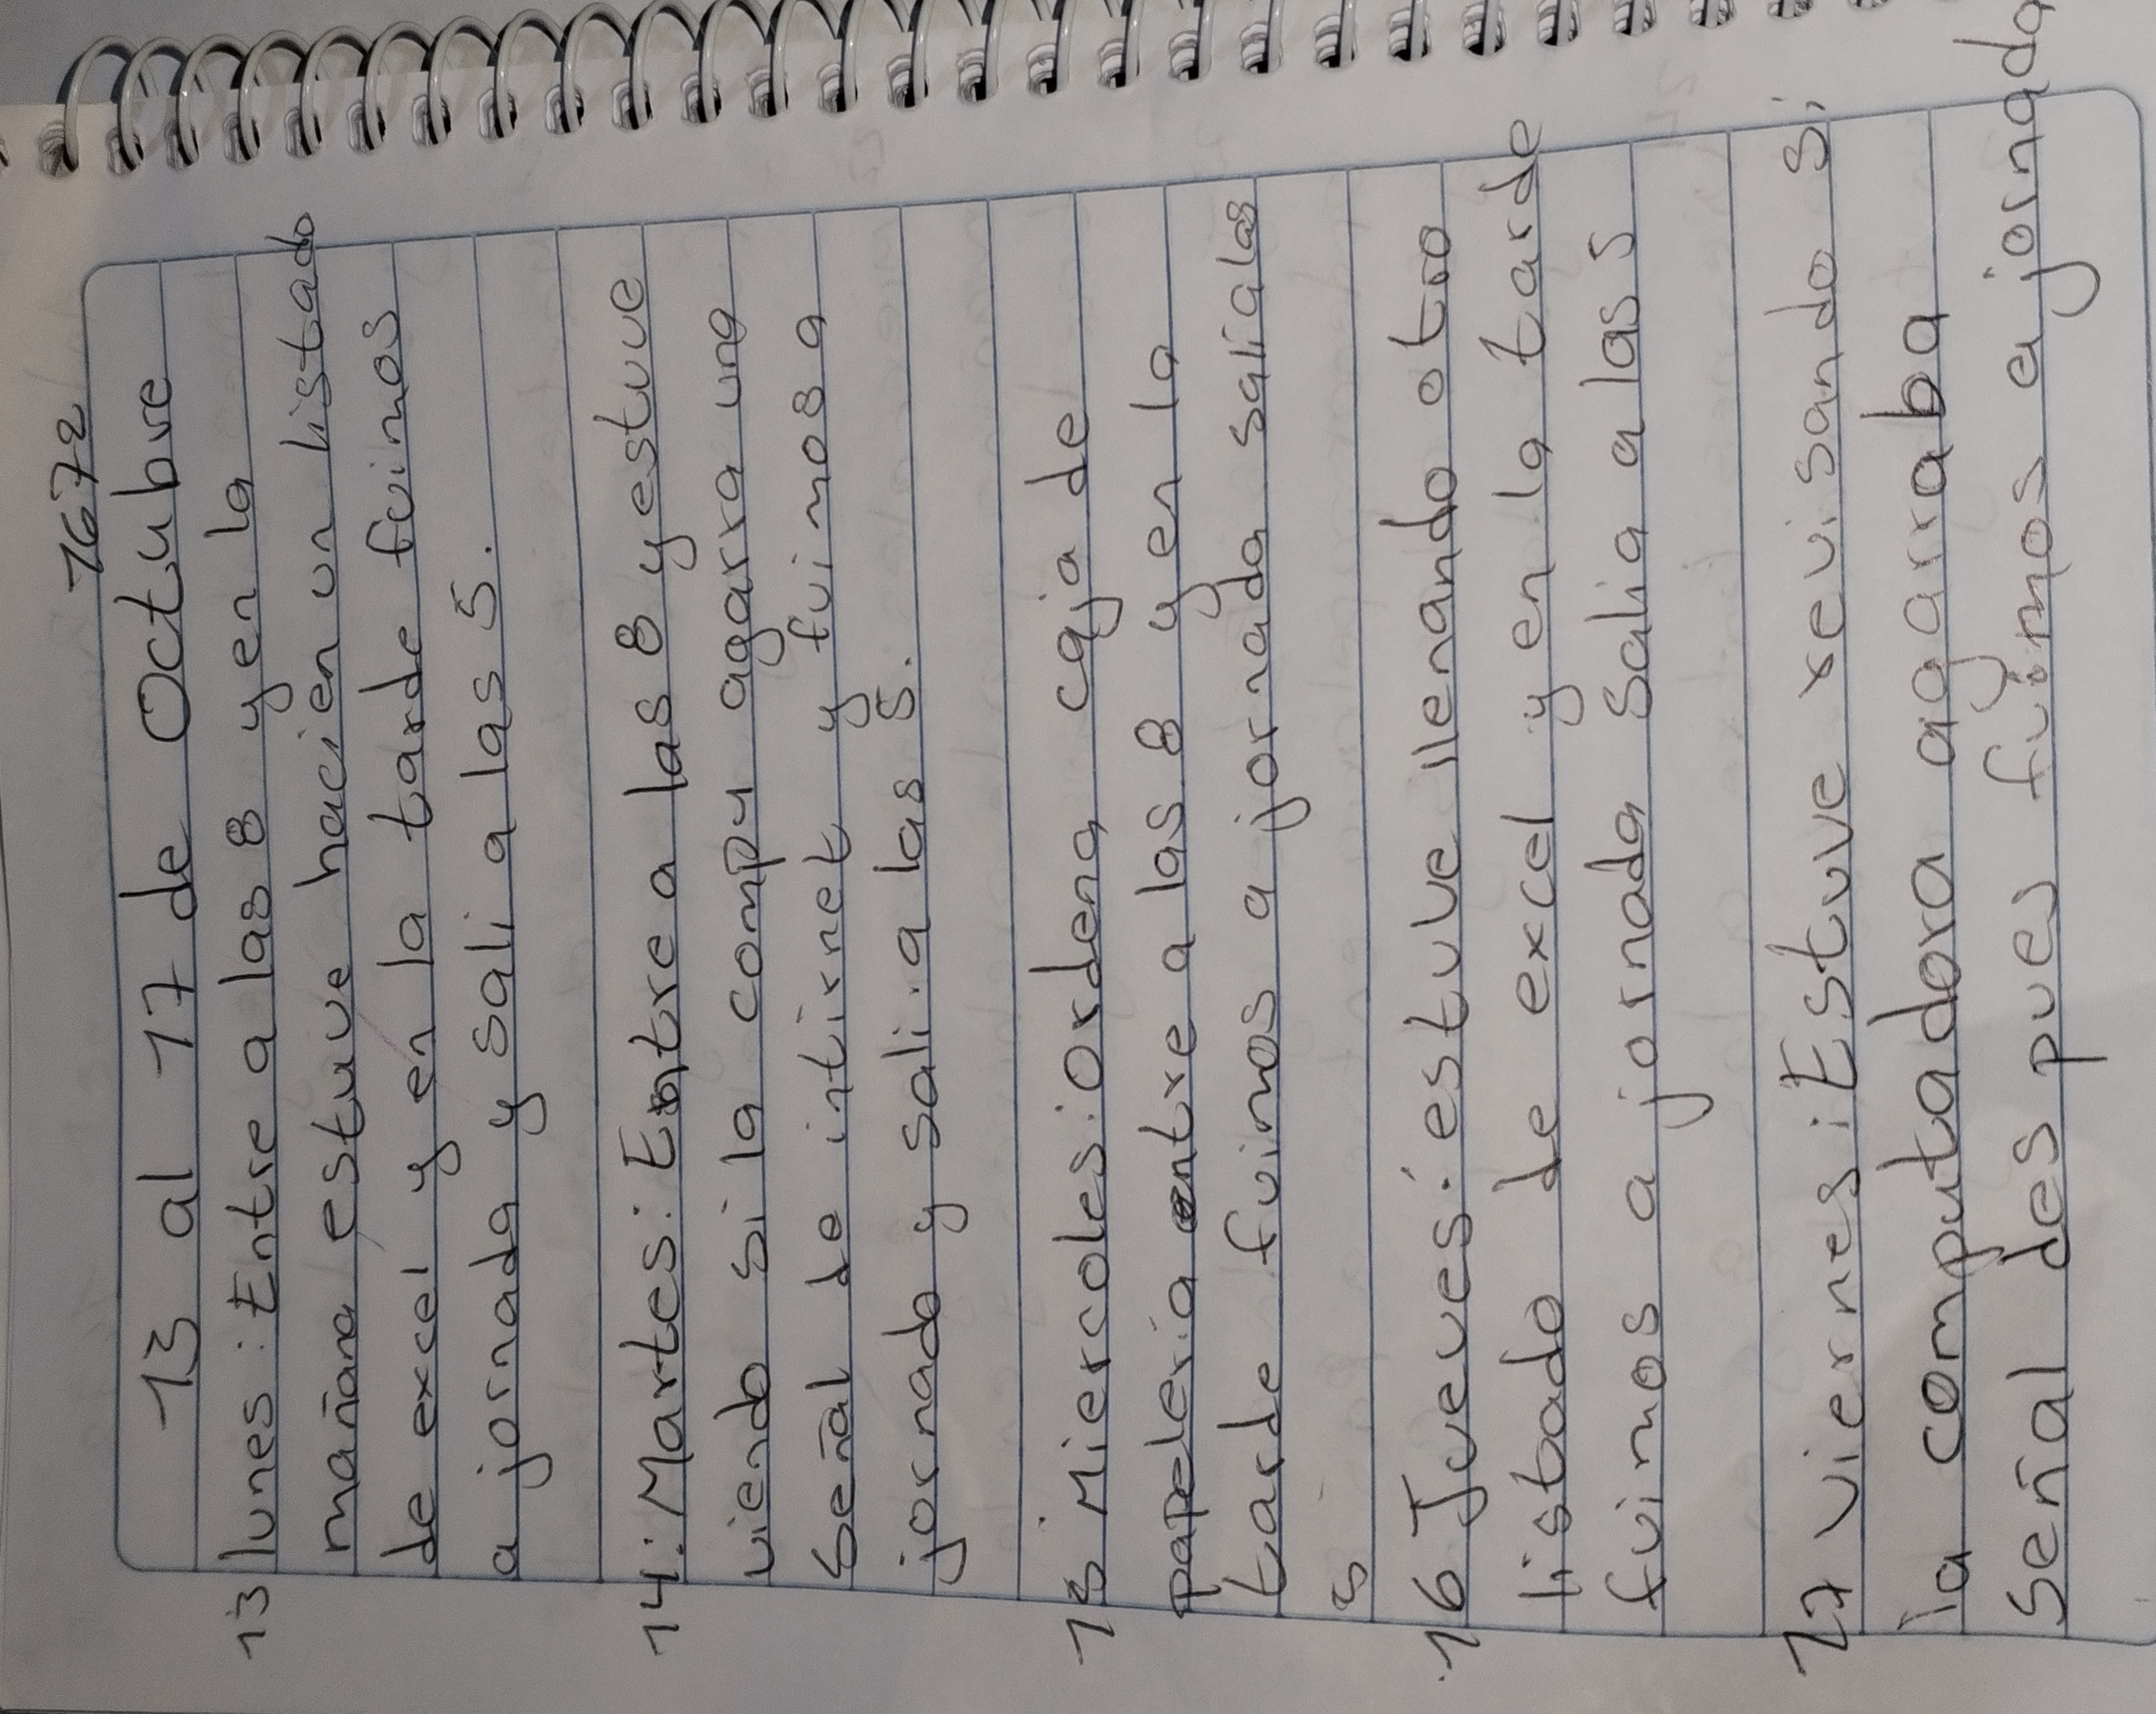 1672
13 al 17 de Octubre
13 lunes: Entre a las 8 y en la
mañana estuve hacien un listado
de excel y en la tarde fuimos
a jornada y sali a las 5.
14: Martes: Entre a las 8 y estuve
viendo si la compu agarra una
Señal de intirnet y fuimos a
jornado y sali a las 5.
15 Miercoles: Ordena caja de
papeleria entre a las 8 y en la
tarde fuimos a jornada salia las
5
16 Jueves: estuve llenando otro
listado de excel y en la tarde
fuimos a jornada Salia a las 5
17 viernes: Estuve revisando si
la computadora agarraba
señal des pues fuimos a jornada